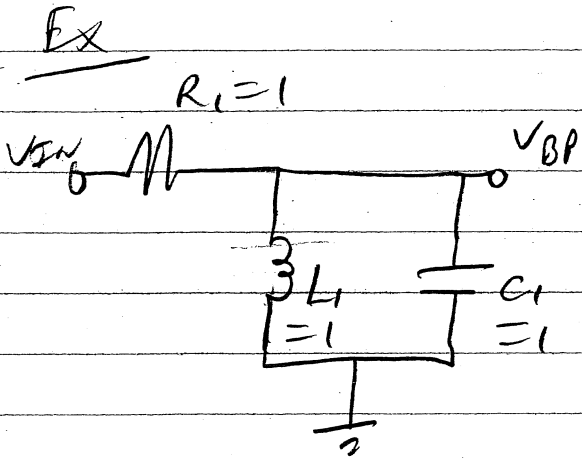 Ex
R₁=1
VIN
VBP
L₁
=1
C₁
=1